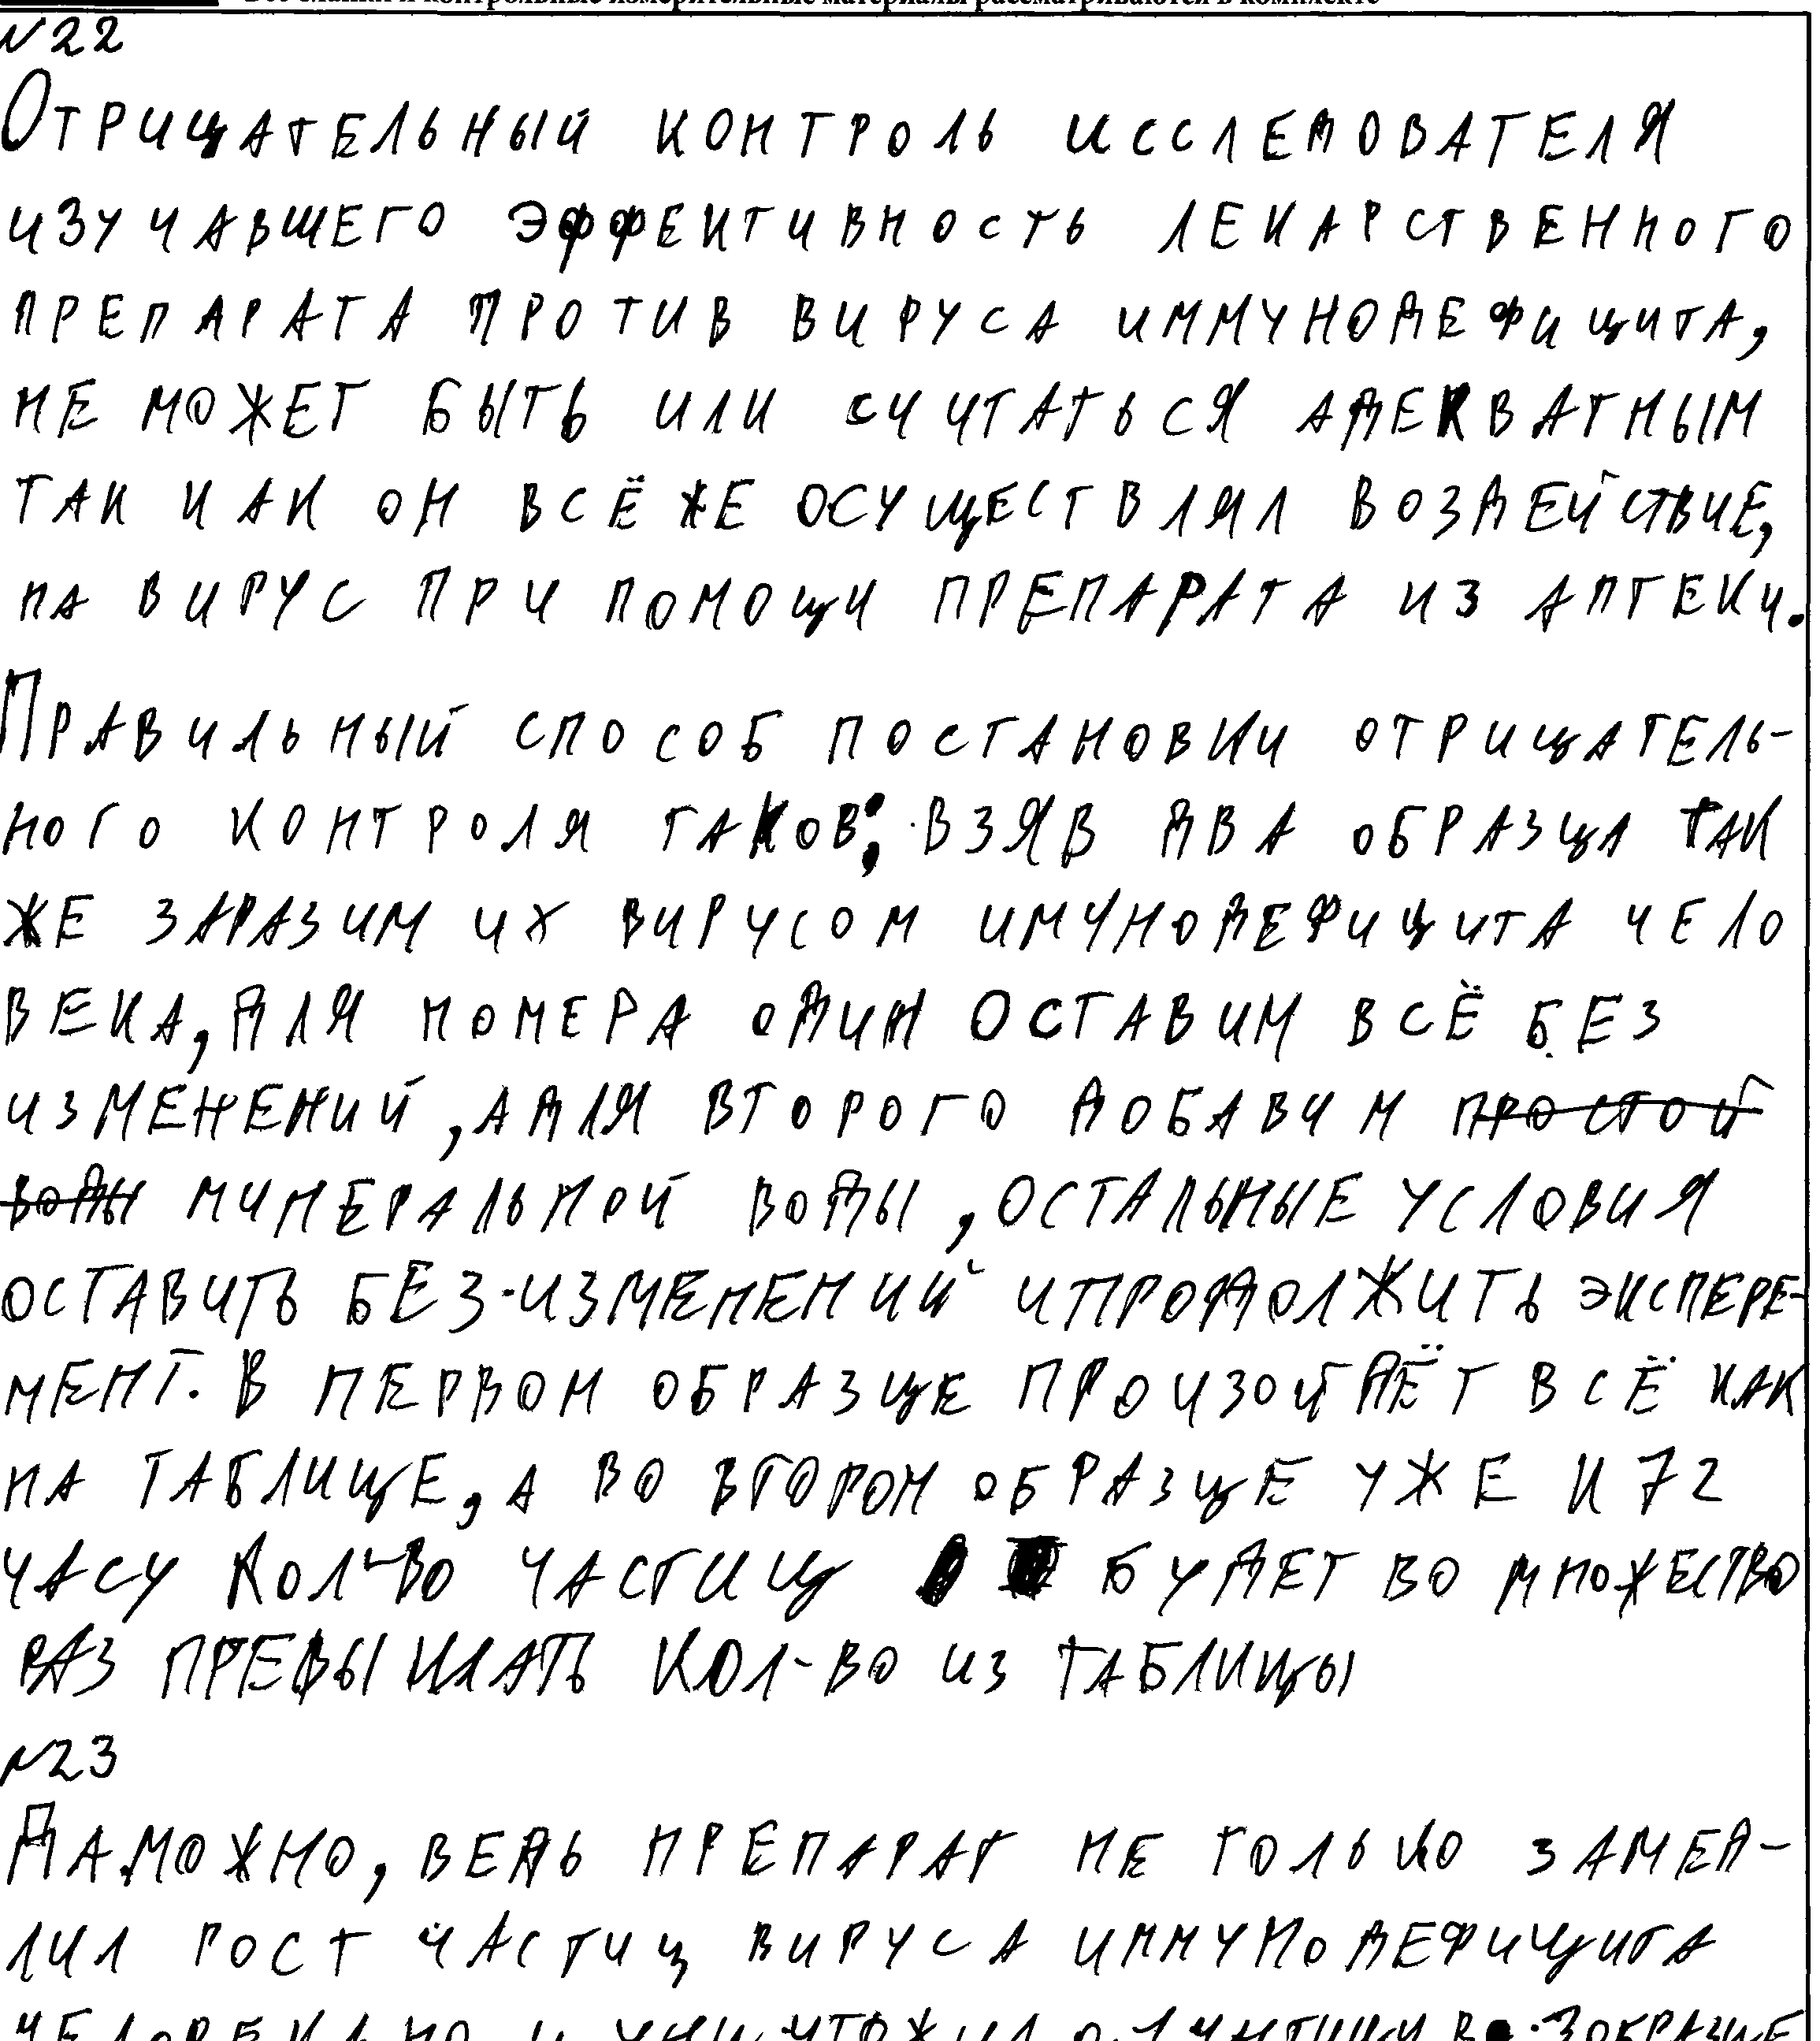 Все бланки и контрольные измерительные материалы рассматриваются в комплекте
№22
Отрицательный контроль исследователя
изучавшего эффективность лекарственного
препарата против вируса иммунодефицита,
не может быть или считаться адекватным
так как он всё же осуществлял воздействие,
на вирус при помощи препарата из аптеки.
Правильный способ постановки отрицатель-
ного контроля таков: взяв два образца так
же заразим их вирусом имунодефицита чело
века, для номера один оставим всё без
изменений, а для второго добавим простой
воды минеральной воды, остальные условия
оставить без изменений и продолжить экспере-
мент. В первом образце произойдёт всё как
на таблице, а во втором образце уже к 72
часу кол-во частиц будет во множество
раз превышать кол-во из таблицы
№23
Да можно, ведь препарат не только замед-
лил рост частиц вируса иммунодефицита
человека, но и уничтожил